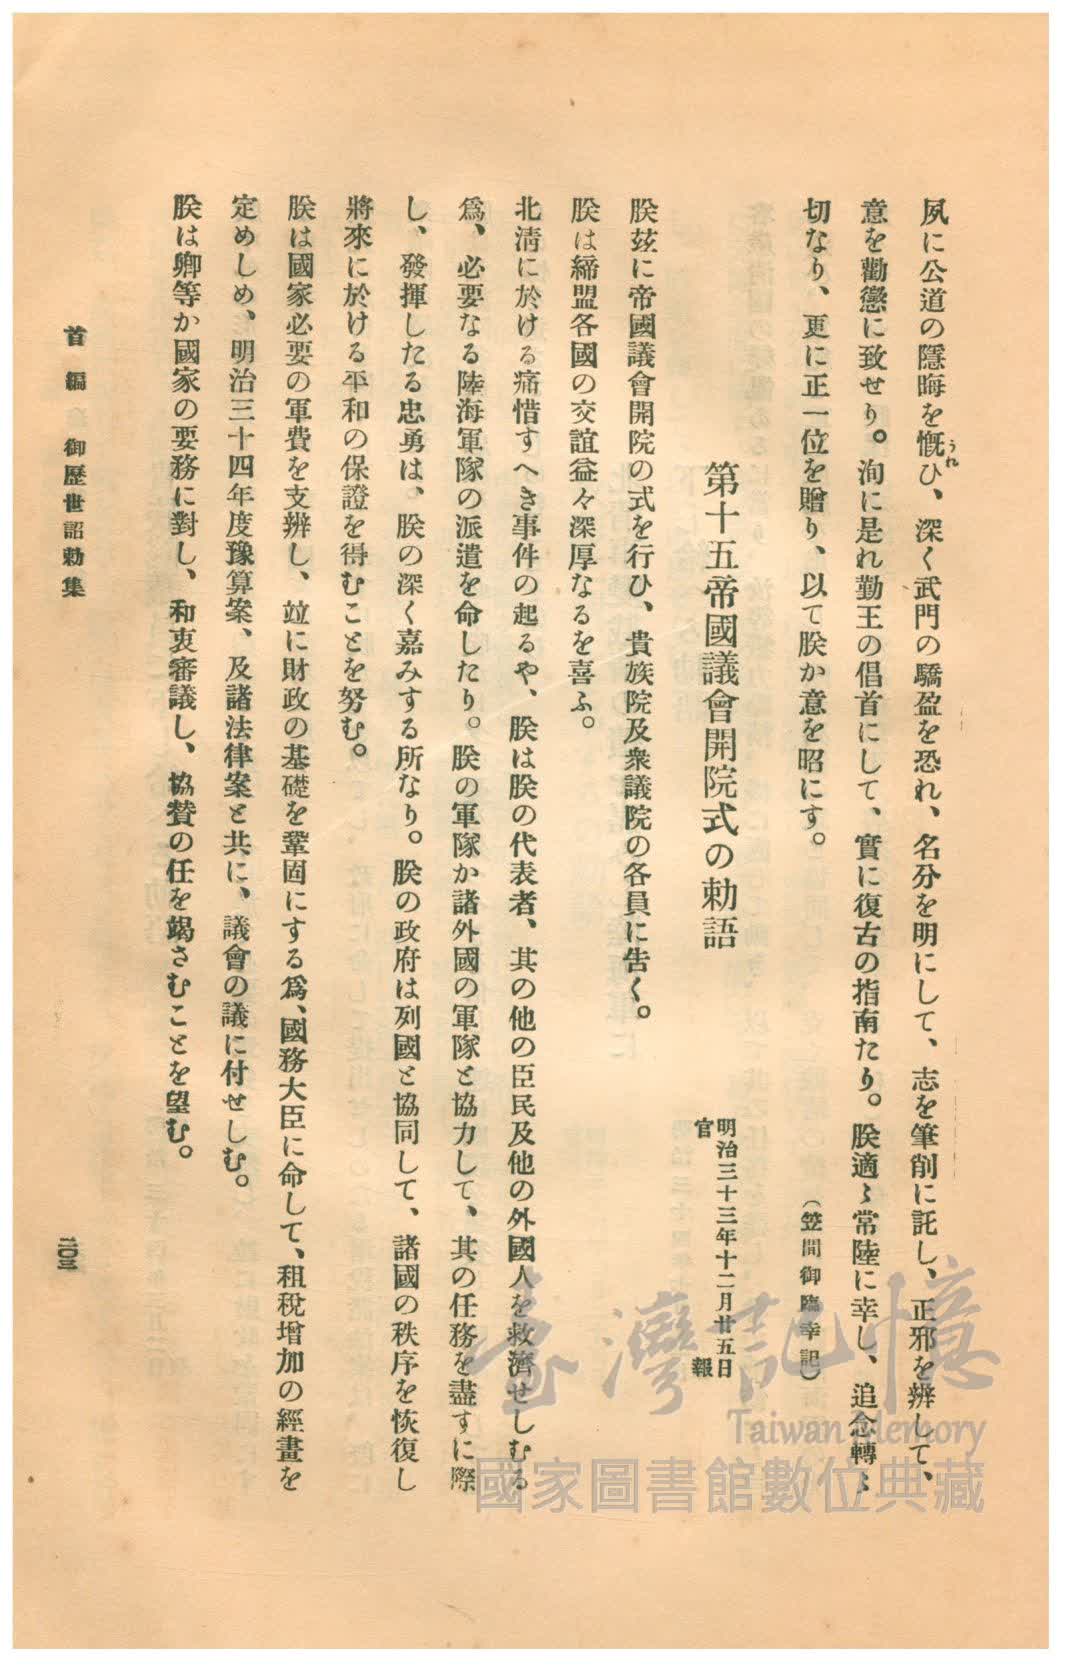 夙に公道の隱晦を慨ひ、深く武門の驕盈を恐れ、名分を明にして、志を筆削に託し、正邪を辨して、
うれ
意を勸懲に致せり。洵に是れ勤王の倡首にして、實に復古の指南たり。朕適〻常陸に幸し、追念轉〻
切なり、更に正一位を贈り、以て朕か意を昭にす。
（笠間御臨幸記）
第十五帝國議會開院式の勅語
明治三十三年十二月廿五日
官報
朕玆に帝國議會開院の式を行ひ、貴族院及衆議院の各員に告く。
朕は締盟各國の交誼益々深厚なるを喜ふ。
北淸に於ける痛惜すへき事件の起るや、朕は朕の代表者、其の他の臣民及他の外國人を救濟せしむる
爲、必要なる陸海軍隊の派遣を命したり。朕の軍隊か諸外國の軍隊と協力して、其の任務を盡すに際
し、發揮したる忠勇は、朕の深く嘉みする所なり。朕の政府は列國と協同して、諸國の秩序を恢復し
將來に於ける平和の保證を得むことを努む。
朕は國家必要の軍費を支辨し、竝に財政の基礎を鞏固にする爲、國務大臣に命して、租稅增加の經畫を
定めしめ、明治三十四年度豫算案、及諸法律案と共に、議會の議に付せしむ。
朕は卿等か國家の要務に對し、和衷審議し、協贊の任を竭さむことを望む。
首編 御歷世詔勅集
二〇三
臺灣記憶
Taiwan Memory
國家圖書館數位典藏